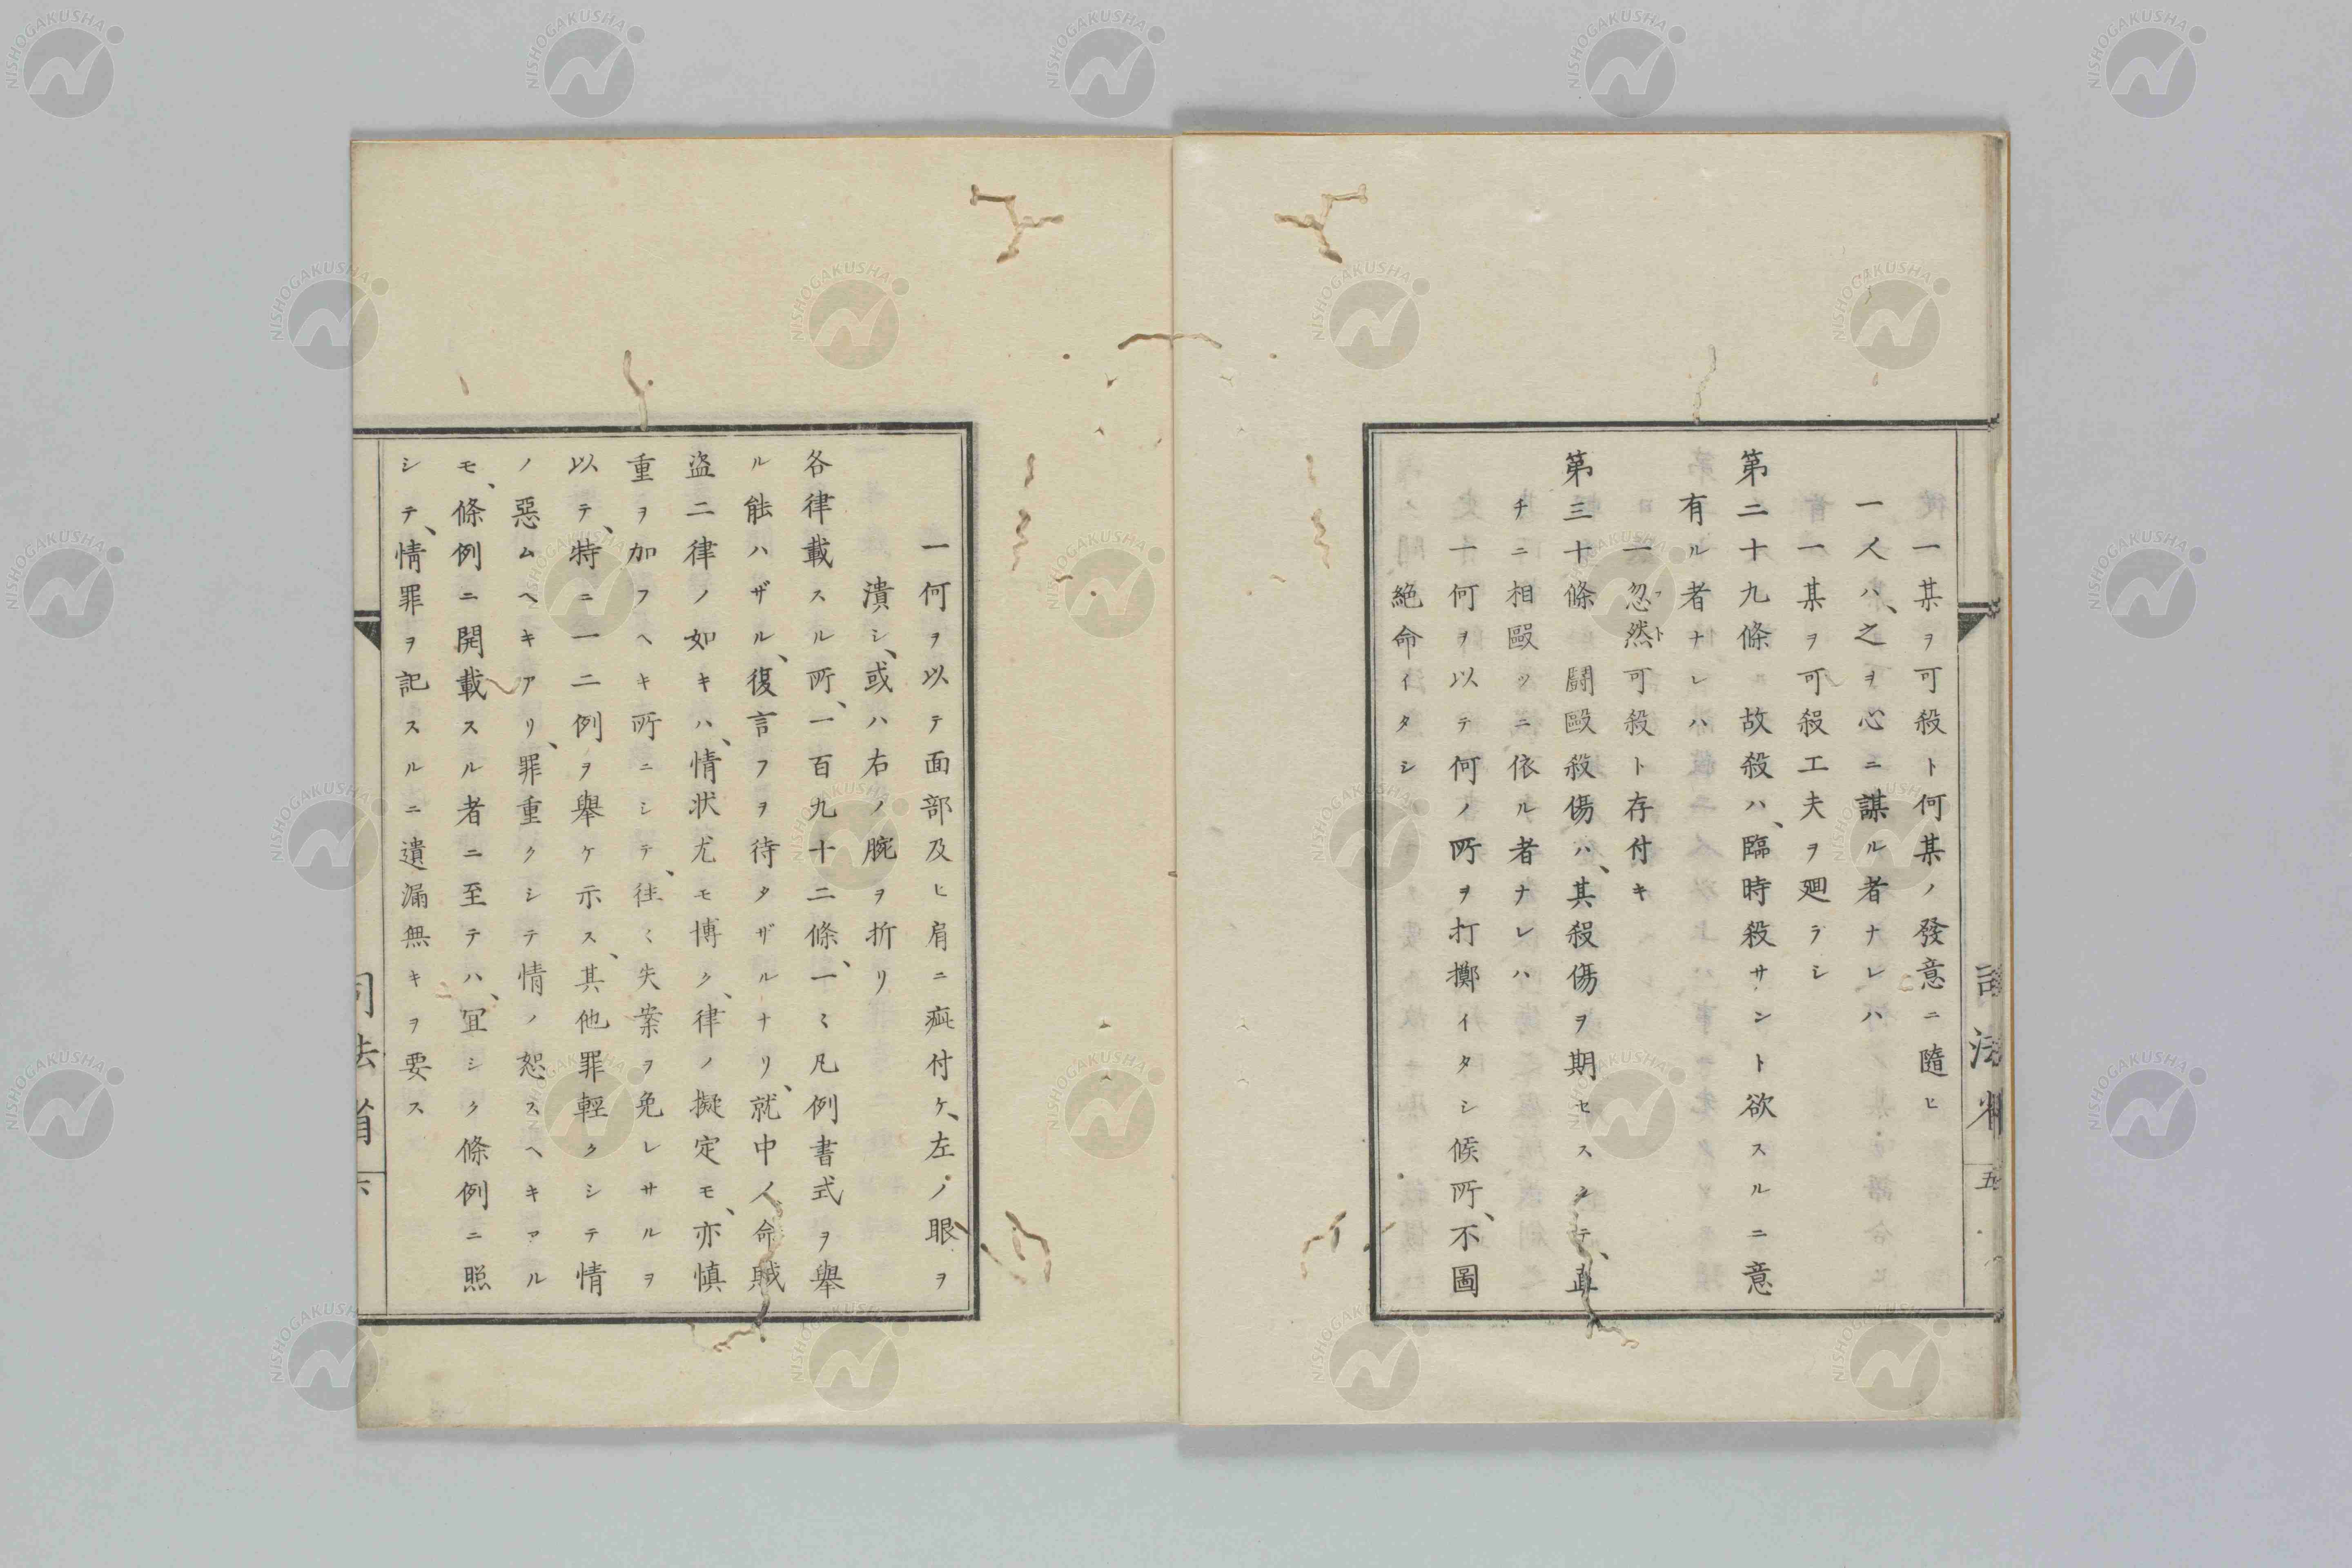 一某ヲ可殺ト何某ノ發意ニ隨ヒ
一人ハ、之ヲ心ニ謀ル者ナレハ
一某ヲ可殺工夫ヲ廻ラシ
第二十九條 故殺ハ、臨時殺サント欲スルニ意
有ル者ナレハ
一忽然可殺ト存付キ
フト
第三十條 鬪毆殺傷ハ、其殺傷ヲ期セスシテ、直
チニ相毆ツニ依ル者ナレハ
一何ヲ以テ何ノ所ヲ打擲イタシ候所、不圖
絶命イタシ
司法省
五
一何ヲ以テ面部及ヒ肩ニ疵付ケ、左ノ眼ヲ
潰シ、或ハ右ノ腕ヲ折リ
各律載スル所、一百九十二條、一々凡例書式ヲ舉
ル能ハザル、復言フヲ待タザルナリ、就中人命賊
盜二律ノ如キハ、情状尤モ博ク、律ノ擬定モ、亦慎
重ヲ加フヘキ所ニシテ、往々失案ヲ免レサルヲ
以テ、特ニ一二例ヲ舉ケ示ス、其他罪輕クシテ情
ノ惡ムヘキアリ、罪重クシテ情ノ恕スヘキアル
モ、條例ニ開載スル者ニ至テハ、宜シク條例ニ照
シテ、情罪ヲ記スルニ遺漏無キヲ要ス
司法省
六
NISHOGAKUSHA